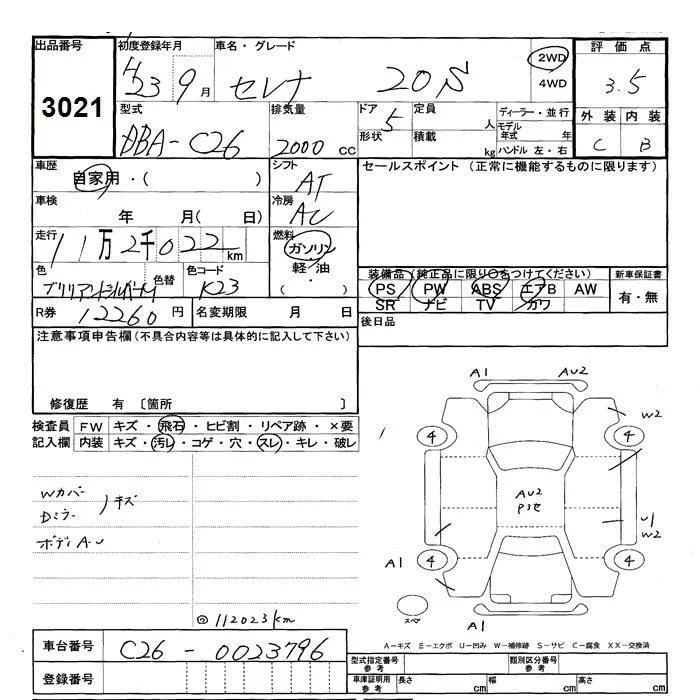 出品番号
3021
初度登録年月
H23 9月
車名・グレード
セレナ 20S
2WD
4WD
評価点
3.5
外装 内装
C B
型式
DBA-C26
排気量
2000 cc
ドア
5
形状
定員 人
積載 kg
ディーラー・並行
モデル年式 年
ハンドル 左・右
車歴
自家用・( )
シフト
AT
セールスポイント (正常に機能するものに限ります)
車検
年 月( 日)
冷房
AC
走行
11万2千022km
燃料
ガソリン
軽・油
( ・ )
色
ブリリアントシルバーM
色替
色コード
K23
装備品(純正品に限り○をつけてください)
PS PW ABS エアB AW
SR ナビ TV カワ
新車保証書
有・無
R券 12260円
名変期限 月 日
後日品
注意事項申告欄(不具合内容等は具体的に記入して下さい)
修復歴 有 〔箇所 〕
検査員記入欄
FW キズ・飛石・ヒビ割・リペア跡・×要
内装 キズ・汚レ・コゲ・穴・スレ・キレ・破レ
Wカバー
Dミラー
キズ
ボディA・U
◎112023km
A1 AU2
W2
4 4
AU2
U1
W2
A1
4 4
スペア
A1
A-キズ E-エクボ U-凹み W-補修跡 S-サビ C-腐食 XX-交換済
車台番号
C26-0023796
登録番号
型式指定番号
参考
類別区分番号
参考
車庫証明用
参考
長さ cm
幅 cm
高さ cm